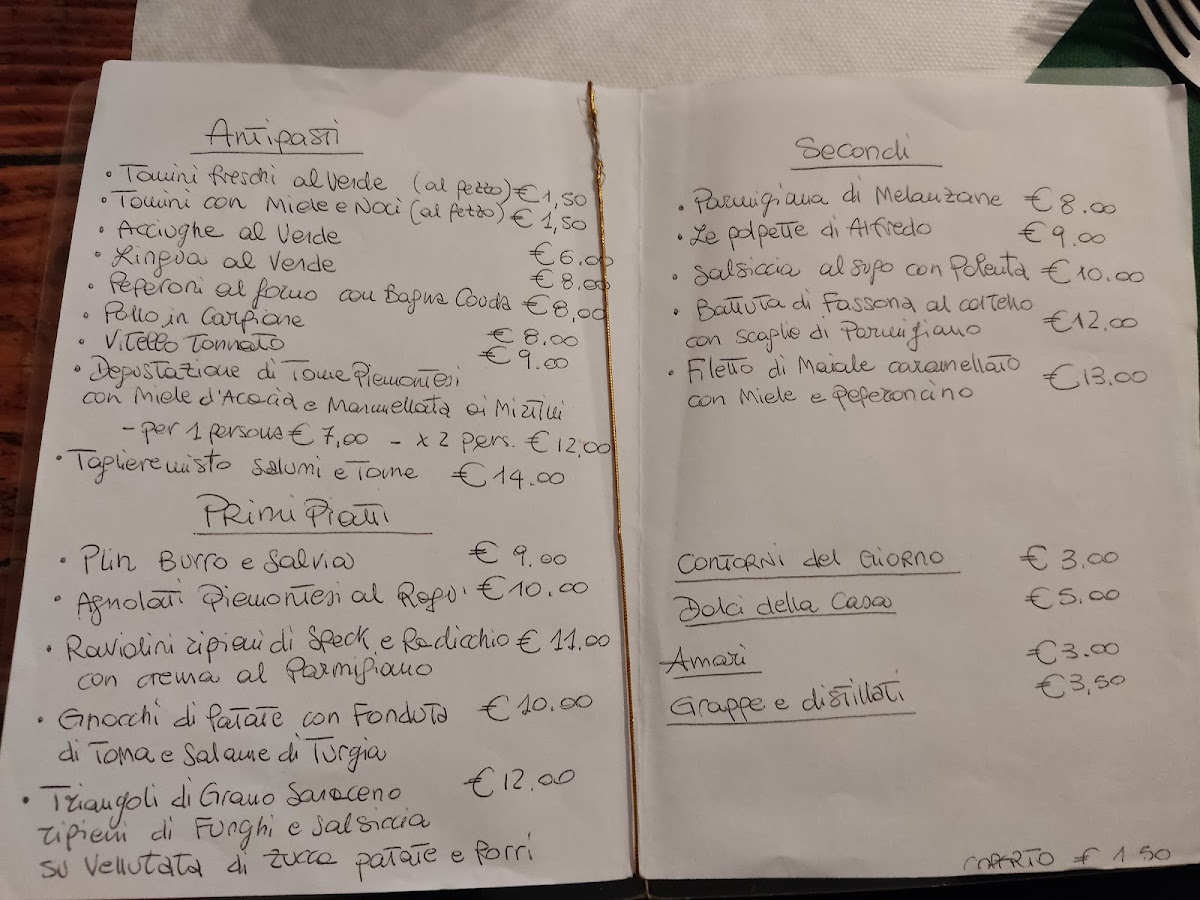 Antipasti
• Tomini freschi al verde (al pezzo) € 1,50
• Tomini con Miele e Noci (al pezzo) € 1,50
• Acciughe al Verde € 6.00
• Lingua al Verde € 8.00
• Peperoni al forno con Bagna Cauda € 8,00
• Pollo in Carpione € 8.00
• Vitello Tonnato € 9.00
• Degustazione di Tome Piemontesi
con Miele d'Acacia e Marmellata di Mirtilli
- per 1 persona € 7,00 - x 2 pers. € 12,00
• Tagliere misto salumi e Tome € 14.00
Primi Piatti
• Plin Burro e Salvia € 9.00
• Agnolotti Piemontesi al Ragù € 10.00
• Raviolini ripieni di Speck e Radicchio € 11.00
con crema al Parmigiano
• Gnocchi di Patate con Fonduta € 10.00
di Toma e Salame di Turgia
• Triangoli di Grano Saraceno € 12.00
ripieni di Funghi e Salsiccia
su Vellutata di zucca patate e Porri
Secondi
• Parmigiana di Melanzane € 8.00
• Le polpette di Alfredo € 9.00
• Salsiccia al sugo con Polenta € 10.00
• Battuta di Fassona al coltello € 12.00
con scaglie di Parmigiano
• Filetto di Maiale caramellato € 13.00
con Miele e Peperoncino
Contorni del Giorno € 3.00
Dolci della Casa € 5.00
Amari € 3.00
Grappe e distillati € 3,50
COPERTO € 1.50